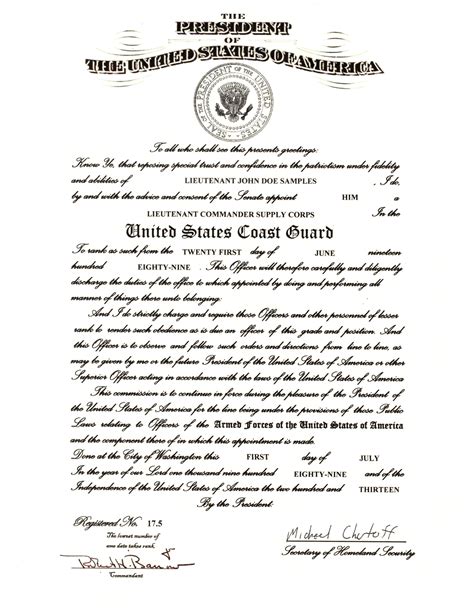 THE
PRESIDENT
OF
THE UNITED STATES OF AMERICA
SEAL OF THE PRESIDENT OF THE UNITED STATES
To all who shall see this presents greetings:
Know Ye, that reposing special trust and confidence in the patriotism under fidelity
and abilities of LIEUTENANT JOHN DOE SAMPLES , I do,
by and with the advice and consent of the Senate appoint HIM a
LIEUTENANT COMMANDER SUPPLY CORPS In the
United States Coast Guard
To rank as such from the TWENTY FIRST day of JUNE nineteen
hundred EIGHTY-NINE . This Officer will therefore carefully and diligently
discharge the duties of the office to which appointed by doing and performing all
manner of things there unto belonging:
And I do strictly charge and require those Officers and other personnel of lesser
rank to render such obedience as is due an officer of this grade and position. And
this Officer is to observe and follow such orders and directions from line to line, as
may be given by me or the future President of the United States of America or other
Superior Officer acting in accordance with the laws of the United States of America
This commission is to continue in force during the pleasure of the President of
the United States of America for the line being under the provisions of those Public
Laws relating to Officers of the Armed Forces of the United States of America
and the component there of in which this appointment is made.
Done at the City of Washington this FIRST day of JULY
In the year of our Lord one thousand nine hundred EIGHTY-NINE and of the
Independence of the United States of America the two hundred and THIRTEEN
By the President:
Registered No. 17.5
The lowest number of
one date takes rank.
Michael Chertoff
Secretary of Homeland Security
Commandant